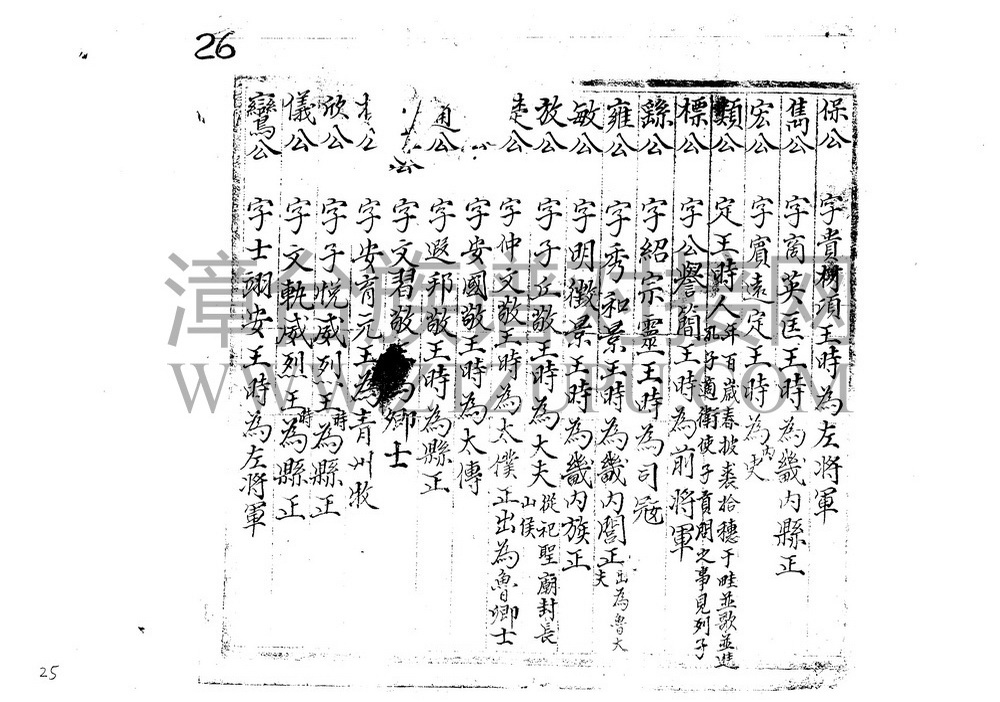 26
保公 字貴樹頃王時為左將軍
雋公 字商英匡王時為畿内縣正
宏公 字賓遠定王時為内史
類公 定王時人年百歲春披裘拾穗于畦並歌並進孔子適衛使子貢問之事見列子
標公 字公譽簡王時為前將軍
繇公 字紹宗靈王時為司寇
雍公 字秀和景王時為畿内閭正出為魯大夫
敏公 字明徵景王時為畿内族正
放公 字子丘敬王時為大夫從祀聖廟封長山侯
楚公 字仲文敬王時為太僕正出為魯卿士
字安國敬王時為太傅
通公 字遐邦敬王時為縣正
公 字文碧敬 為卿士
字安育元王為青州牧
欣公 字子悅威烈王時為縣正
儀公 字文軌威烈王時為縣正
鸞公 字士翊安王時為左將軍
漳台族谱对接网
WWW.ZTZUPU.COM
25